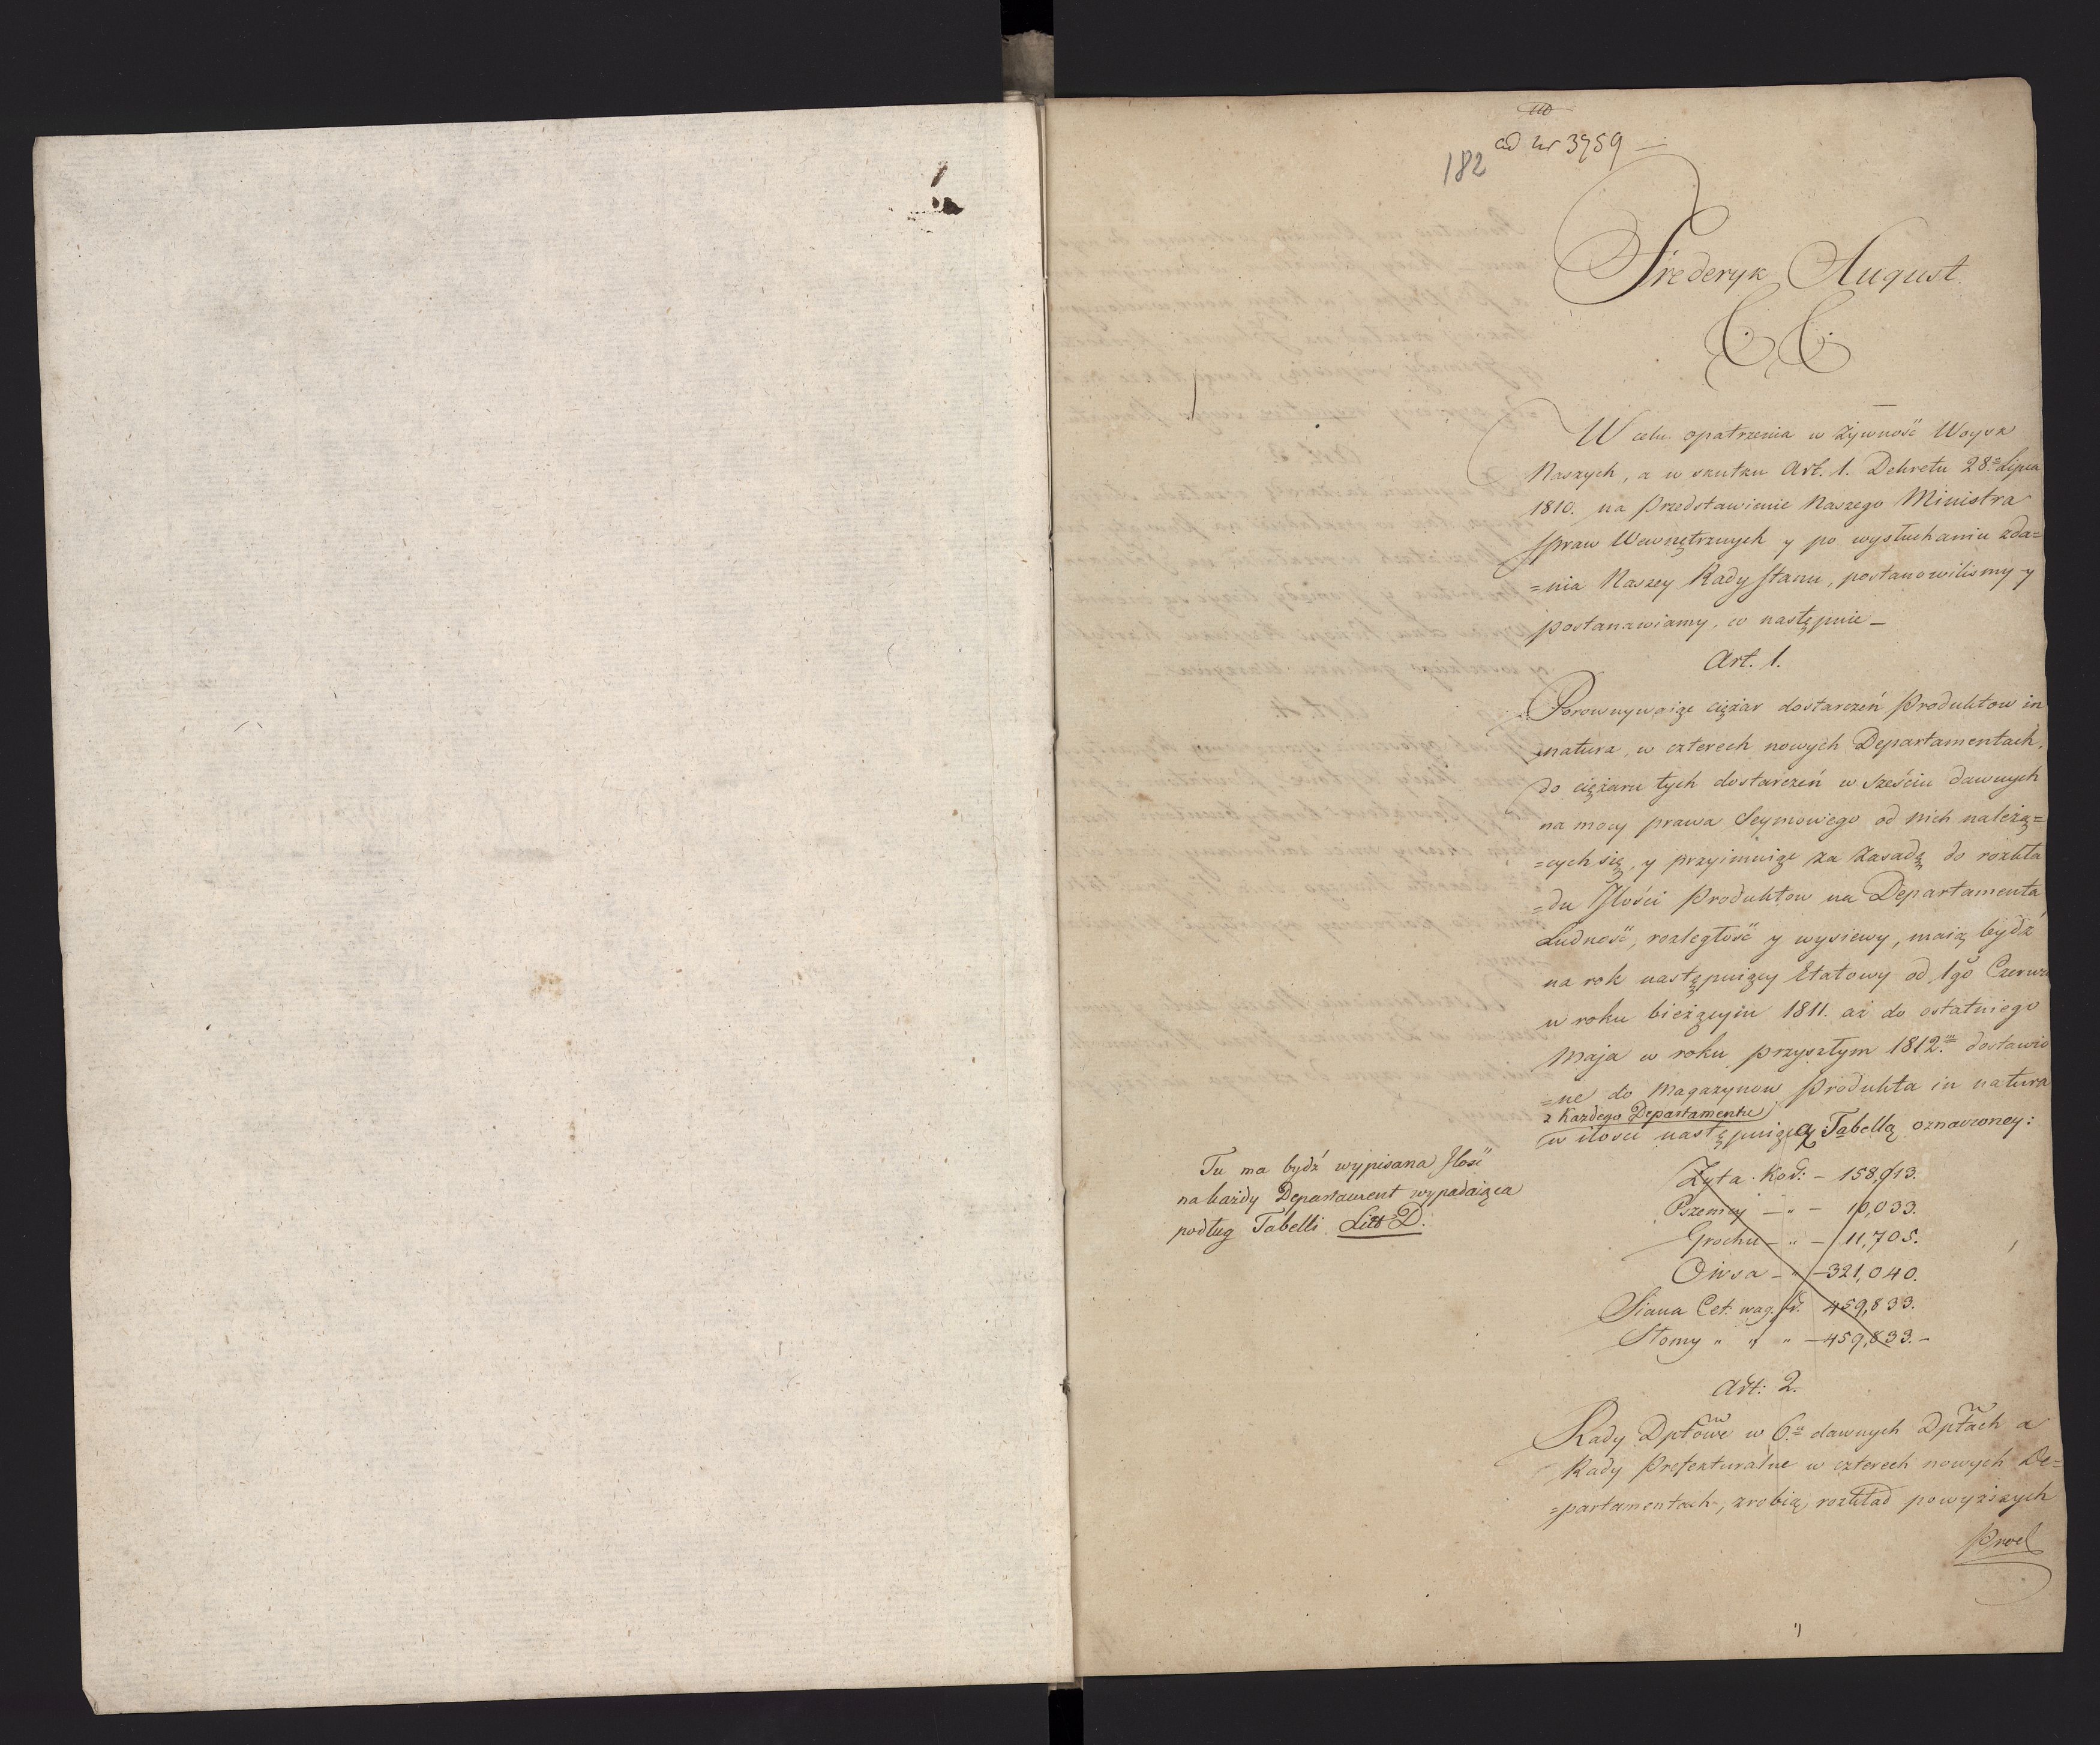 ad Nr 3759
182
Frederyk August.
&. &.
W celu opatrzenia w Żywność Woysk
Naszych, a w skutku Art. 1. Dekretu 28º Lipca
1810. na Przedstawienie Naszego Ministra
Spraw Wewnętrznych y po wysłuchaniu zda=
=nia Naszey Rady Stanu, postanowiliśmy y
postanawiamy, co następuie _
Art. 1.
Porownywaiąc ciężar dostarczeń Produktow in
natura, w czterech nowych Departamentach,
do ciężaru tych dostarczeń w sześciu dawnych
na mocy prawa Seymowego od nich należą=
=cych się, y przyimuiąc za zasadę do rozkła
=du Jlości Produktow na Departamenta
Ludność, rozległość y wysiewy, maią bydź
na rok następuiący Etatowy od 1go Czerwca
w roku bieżącym 1811. aż do ostatniego
Maja w roku przyszłym 1812m dostawio
=ne do Magazynow Produkta in natura
z każdego Departamentu
w ilości następuiącą Tabellą oznaczoney:
Tu ma bydź wypisana Jlość
na każdy Departament wypadaiąca
podług Tabelli Litt D.
Żyta Kor: - 158,913.
Pszenicy - " - 10,033.
Grochu - " - 11,705.
Owsa - " - 321,040.
Siana Cet. wag. fr. 459,833.
Słomy " " " - 459,833. -
Art: 2.
Rady Dptowe w 6u dawnych Dptach a
Rady Prefekturalne w czterech nowych De=
=partamentach, zrobią rozkład powyższych
Prod